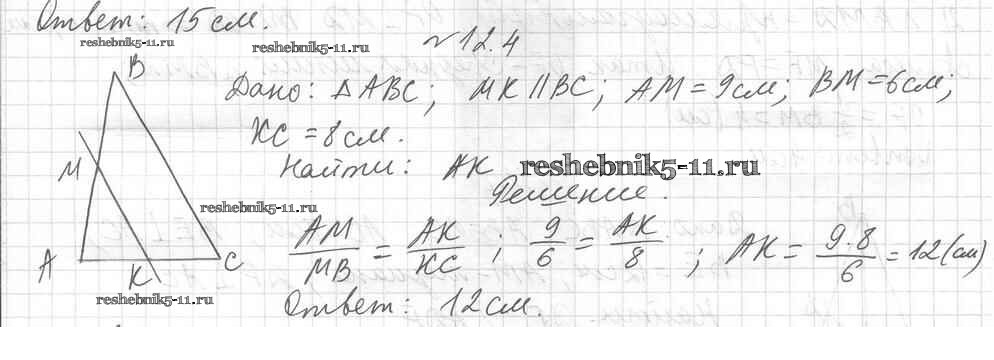 Ответ: 15 см.
reshebnik5-11.ru
reshebnik5-11.ru
№12.4
B
Дано: △ABC; MK||BC; AM=9см; BM=6см;
KC=8см.
M
Найти: AK
reshebnik5-11.ru
Решение.
reshebnik5-11.ru
AM/MB = AK/KC ; 9/6 = AK/8 ; AK = 9·8/6 = 12(см)
A K C
reshebnik5-11.ru
Ответ: 12см.